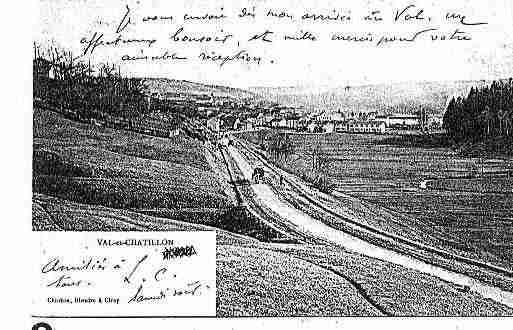 Je vous envoie dès mon arrivée au Val, un
affectueux bonsoir, et mille mercis pour votre
aimable réception.
VAL-et-CHATILLON
Amitiés à
tous. L. C.
Samedi soir.
Cirey